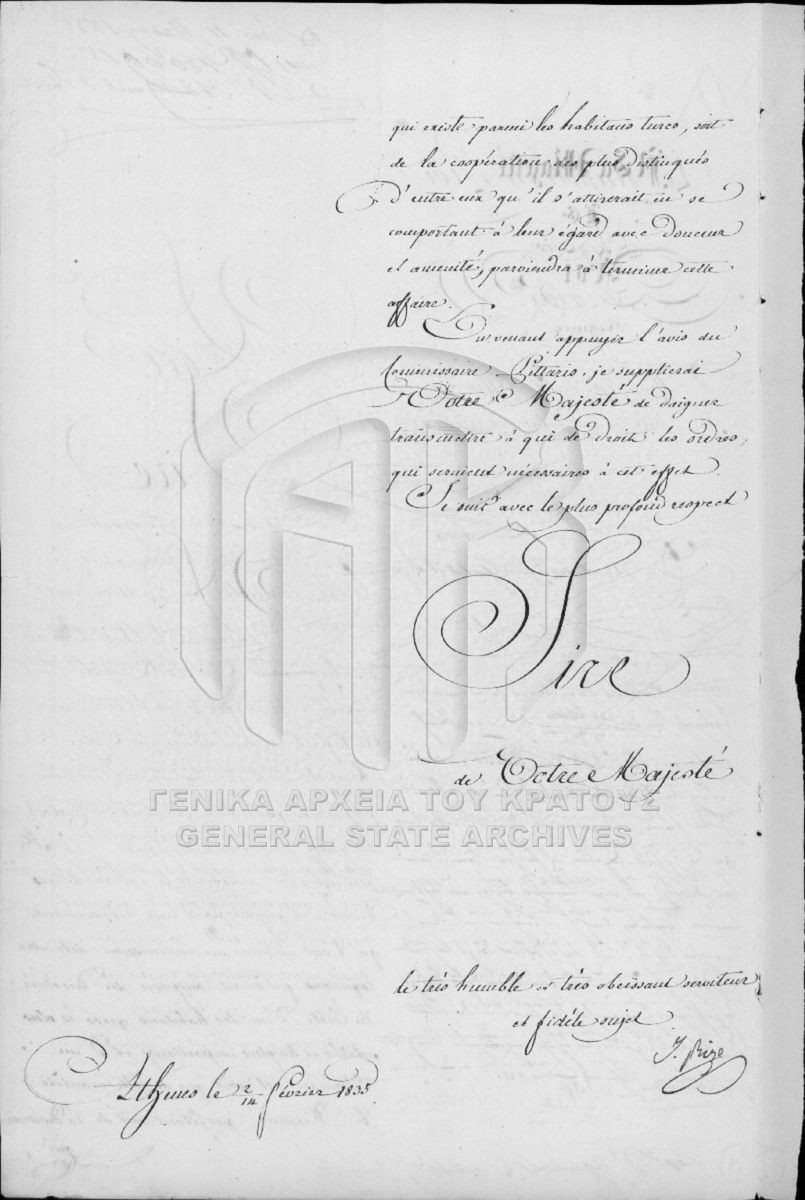 qui existe parmi les habitans turcs, soit
de la coopération des plus distingués
d'entre eux qu'il s'attirerait en se
comportant à leur égard avec douceur
et amenité, parviendra à terminer cette
affaire.
En venant appuyer l'avis du
Commissaire Pittario, je supplierai
Votre Majesté de daigner
transmettre à qui de droit les ordres,
qui seraient nécessaires à cet effet.
Je suis avec le plus profond respect
Sire
de Votre Majesté
ΓΕΝΙΚΑ ΑΡΧΕΙΑ ΤΟΥ ΚΡΑΤΟΥΣ
GENERAL STATE ARCHIVES
le très humble et très obéissant serviteur
et fidéle sujet
J. Rizo
Athènes le 2/14 février 1835